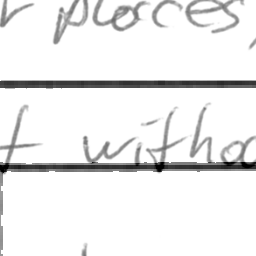 r places,
t witho